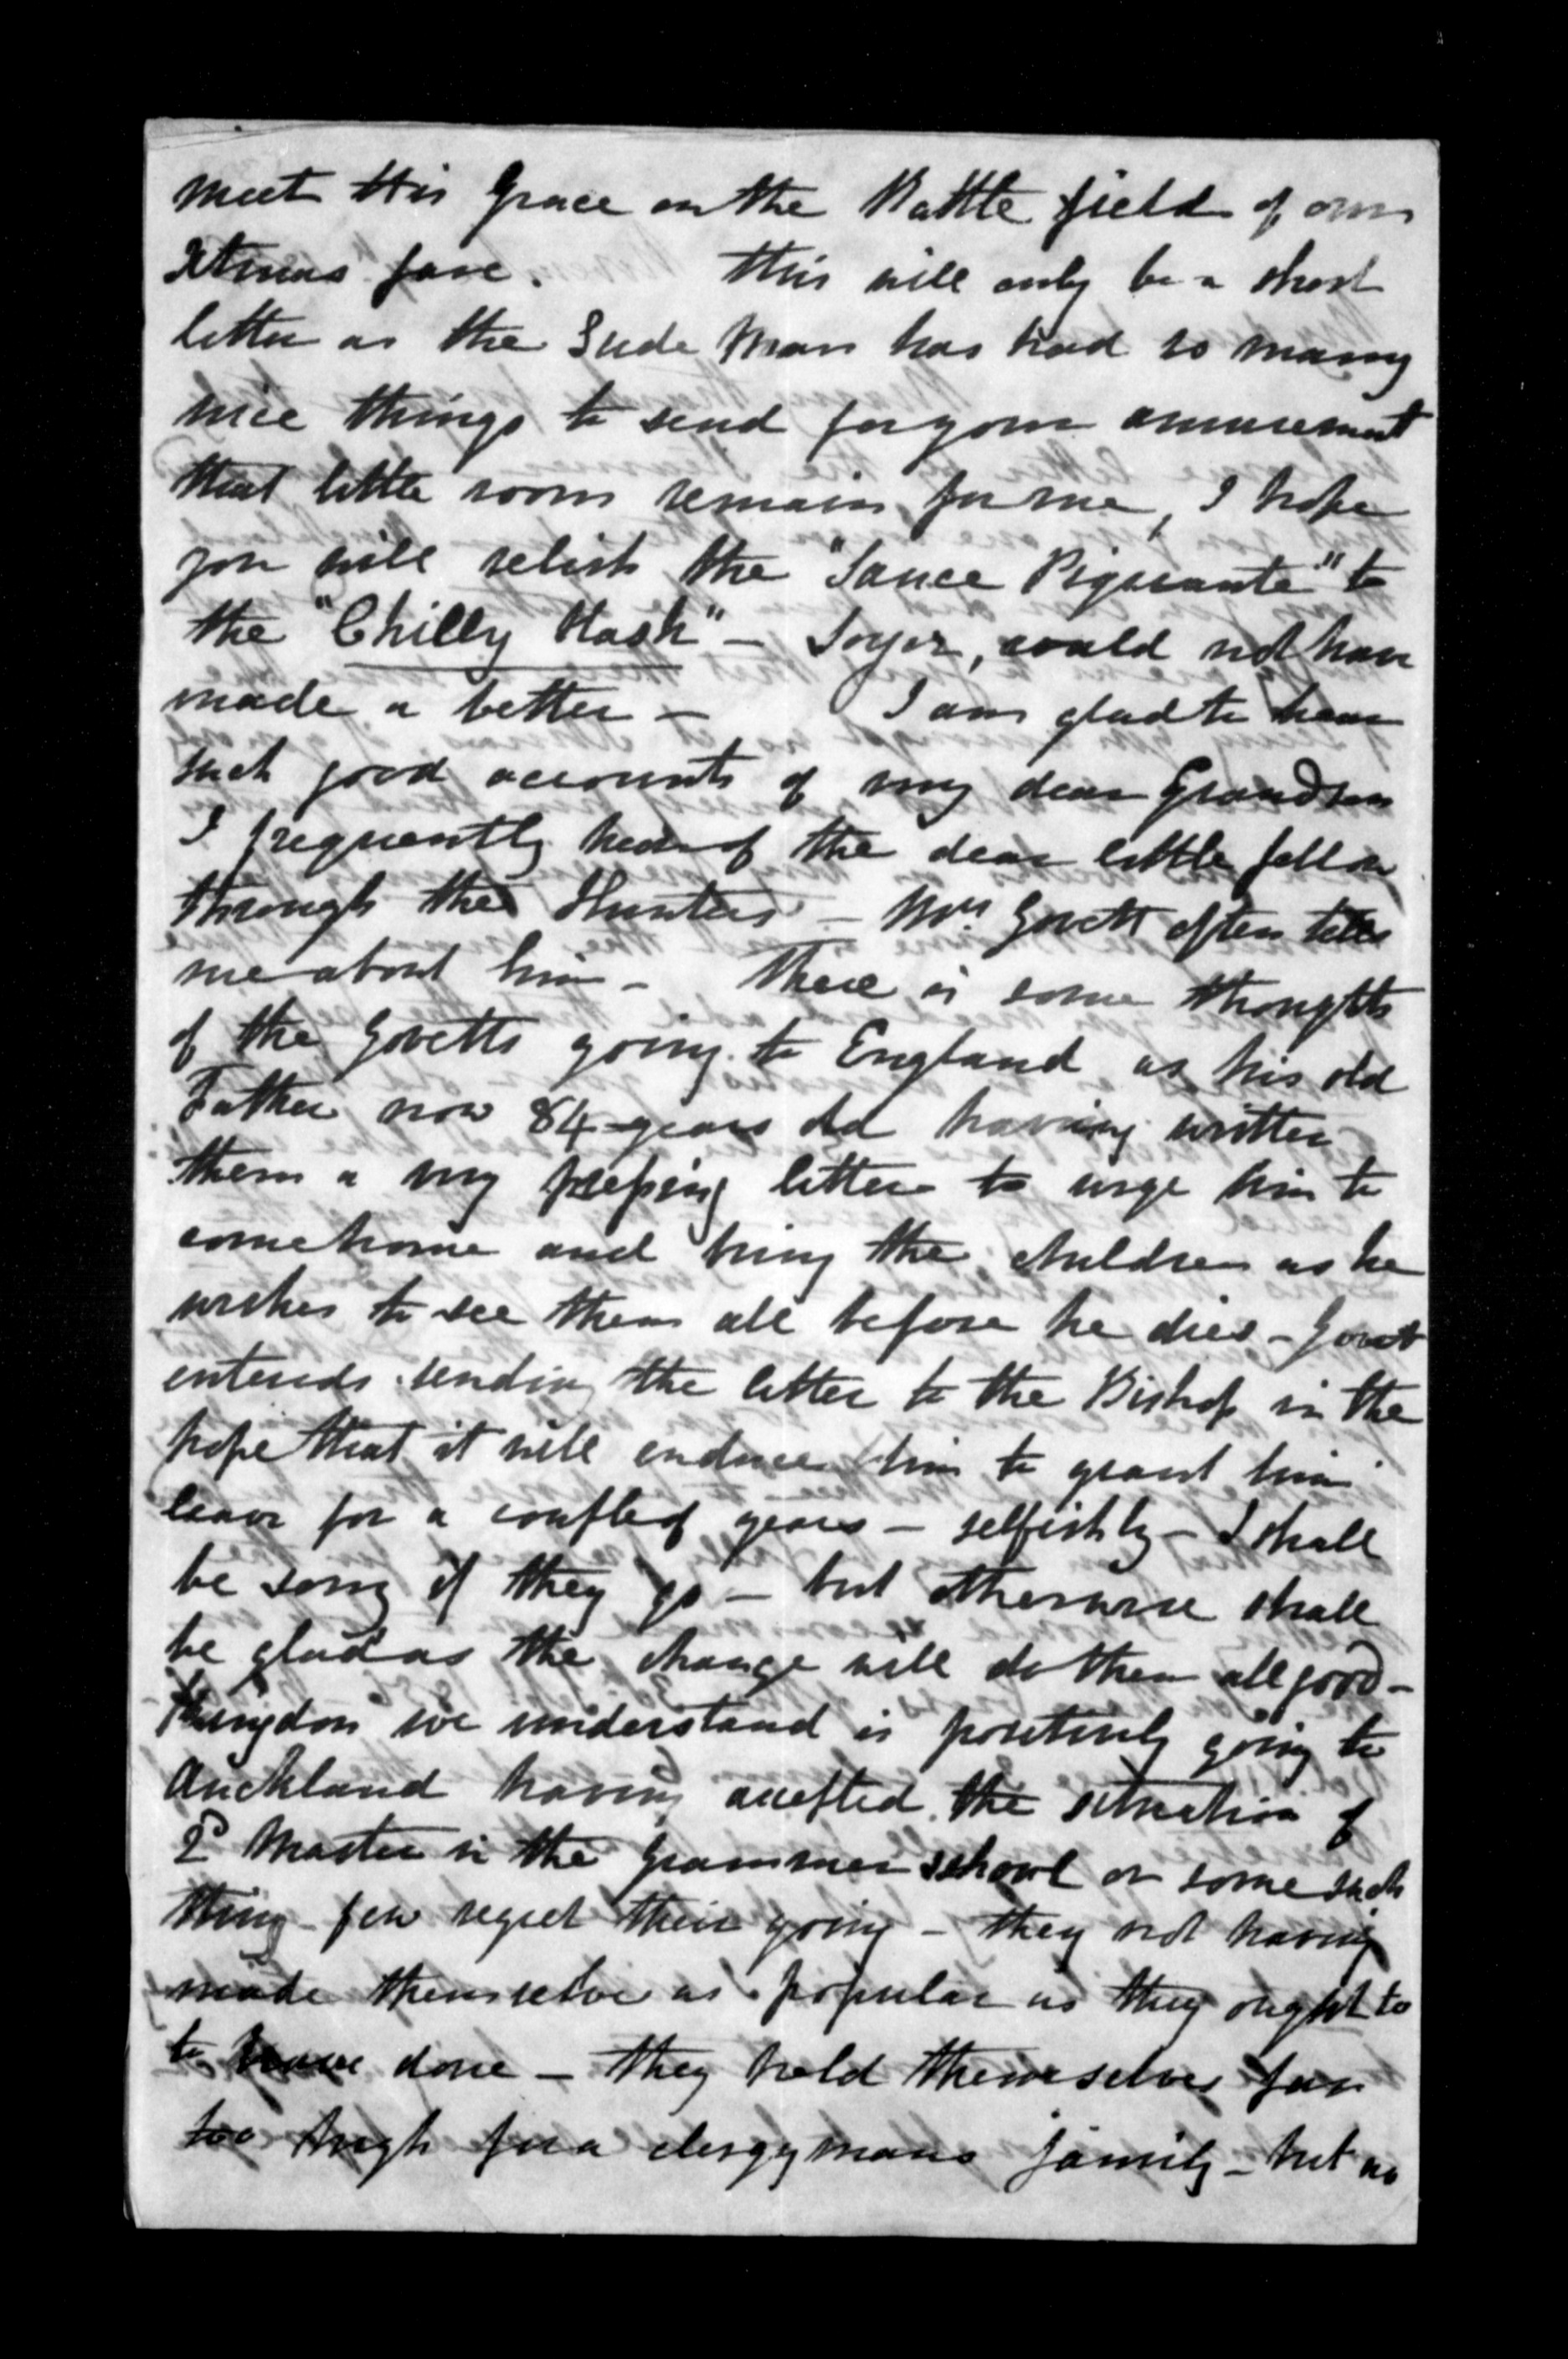 meet His Grace on the Battle field of our
Xtmas fare. This will only be a short
letter as the Sude Man has had so many
nice things to send for your amusement
that little room remains for me, I hope
you will relish the "Sauce Piquante" to
the "Chilly Hash" - Soyer, could not have
made a better - I am glad to hear
such good accounts of my dear Grandson
I frequently hear of the dear little fellow
through the Hunters - Mrs Govett often tells
me about him - There is some thoughts
of the Govetts going to England as his old
Father now 84 years old having written
them a very pressing letter to urge him to
come home and bring the children as he
wishes to see them all before he dies - Govett
entends sending the letter to the Bishop in the
hope that it will enduce him to grant him
leave for a couple of years - selfishly - I shall
be sorry if they go - but otherwise shall
be glad as the change will do them all good -
we understand is positively going to
Auckland having accepted the situation of
2d Master in the Grammer school or some such
thing - few regret their going - they not having
made themselve as popular as they ought to
to have done - they held themselves far
too high for a clergymans family - but no